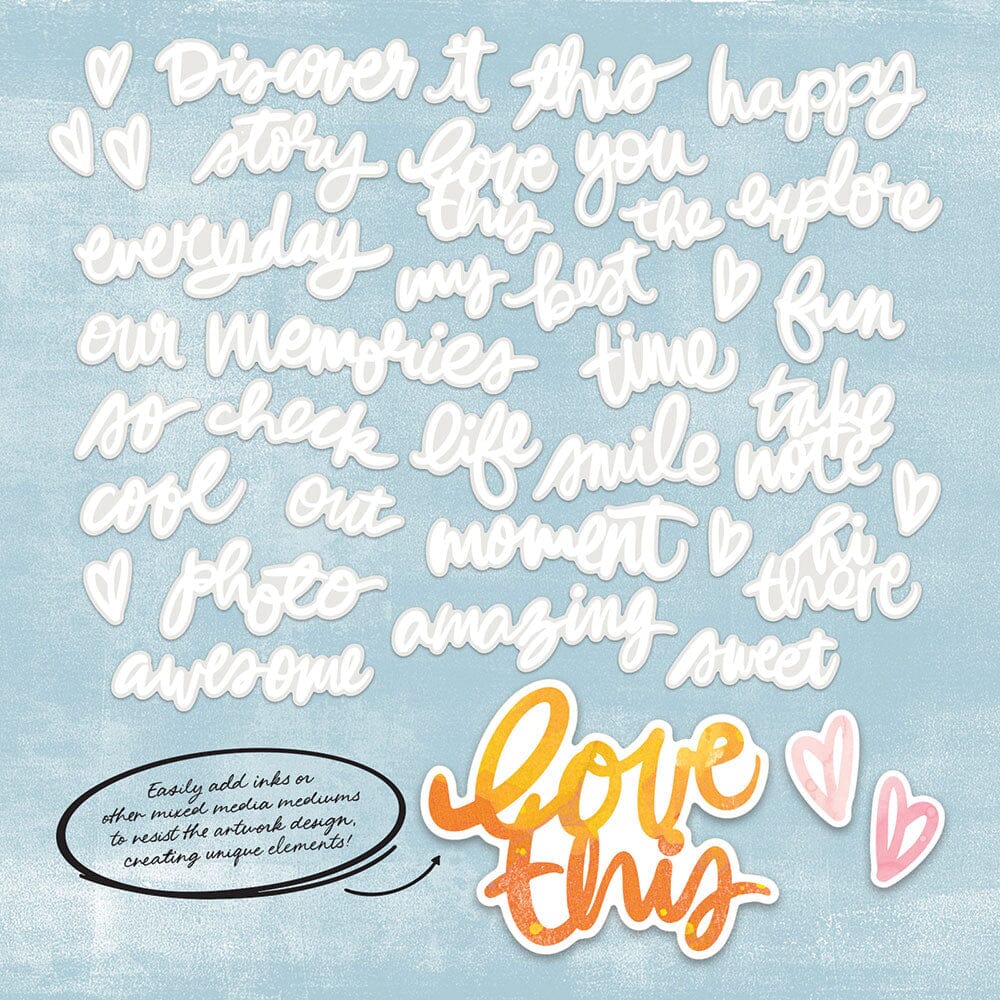 Discover it this happy
story love you explore
this the
everyday my best fun
our memories time
so check life smile take
note
cool out moment hi
there
photo amazing
awesome sweet
love
this
Easily add inks or
other mixed media mediums
to resist the artwork design,
creating unique elements!